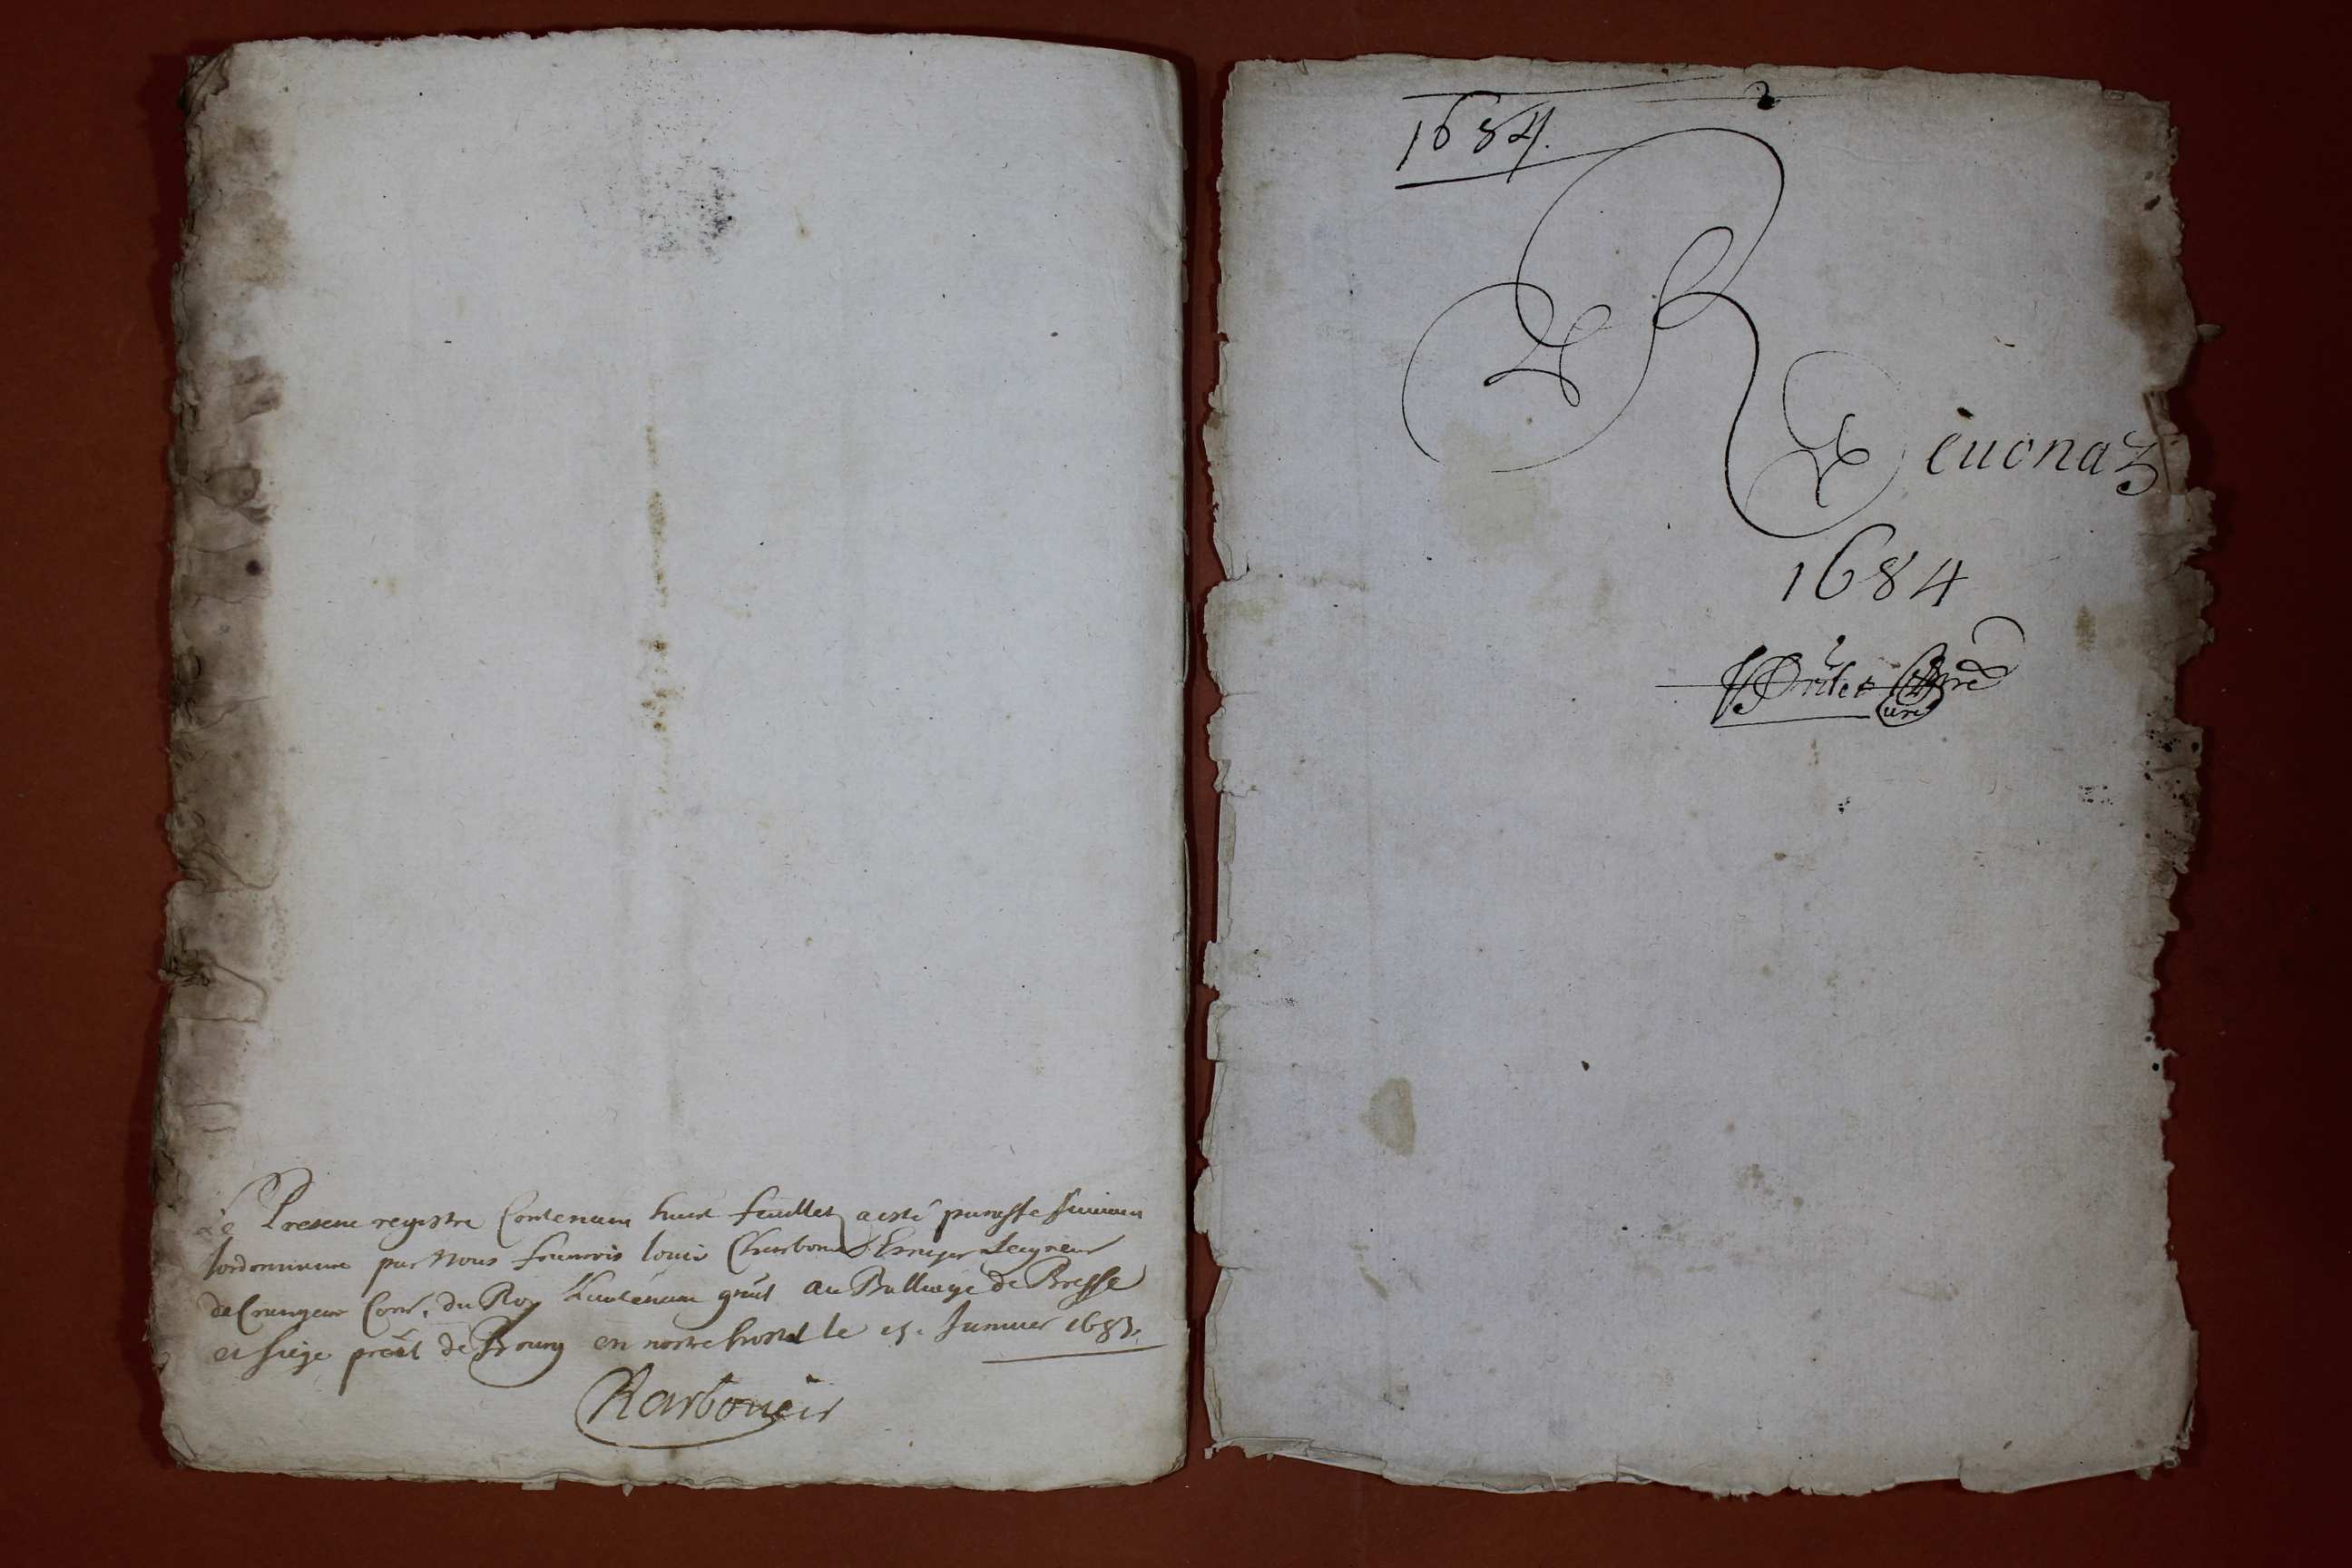 Le Present registre Contenant huict feuillets a esté paraffe suivant
lordonnance par Nous francois louis Charbonnier Escuyer Seigneur
de Crangeac Cons. du Roy Lieutenant gnâl au Balliage de Bresse
et siege preâl de Bourg en nostre hostel le 15. Janvier 1683.
Charbonnier
1684.
Reuonaz
1684
curé